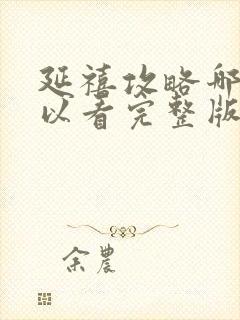 延禧攻略哪
以看完整版
余農